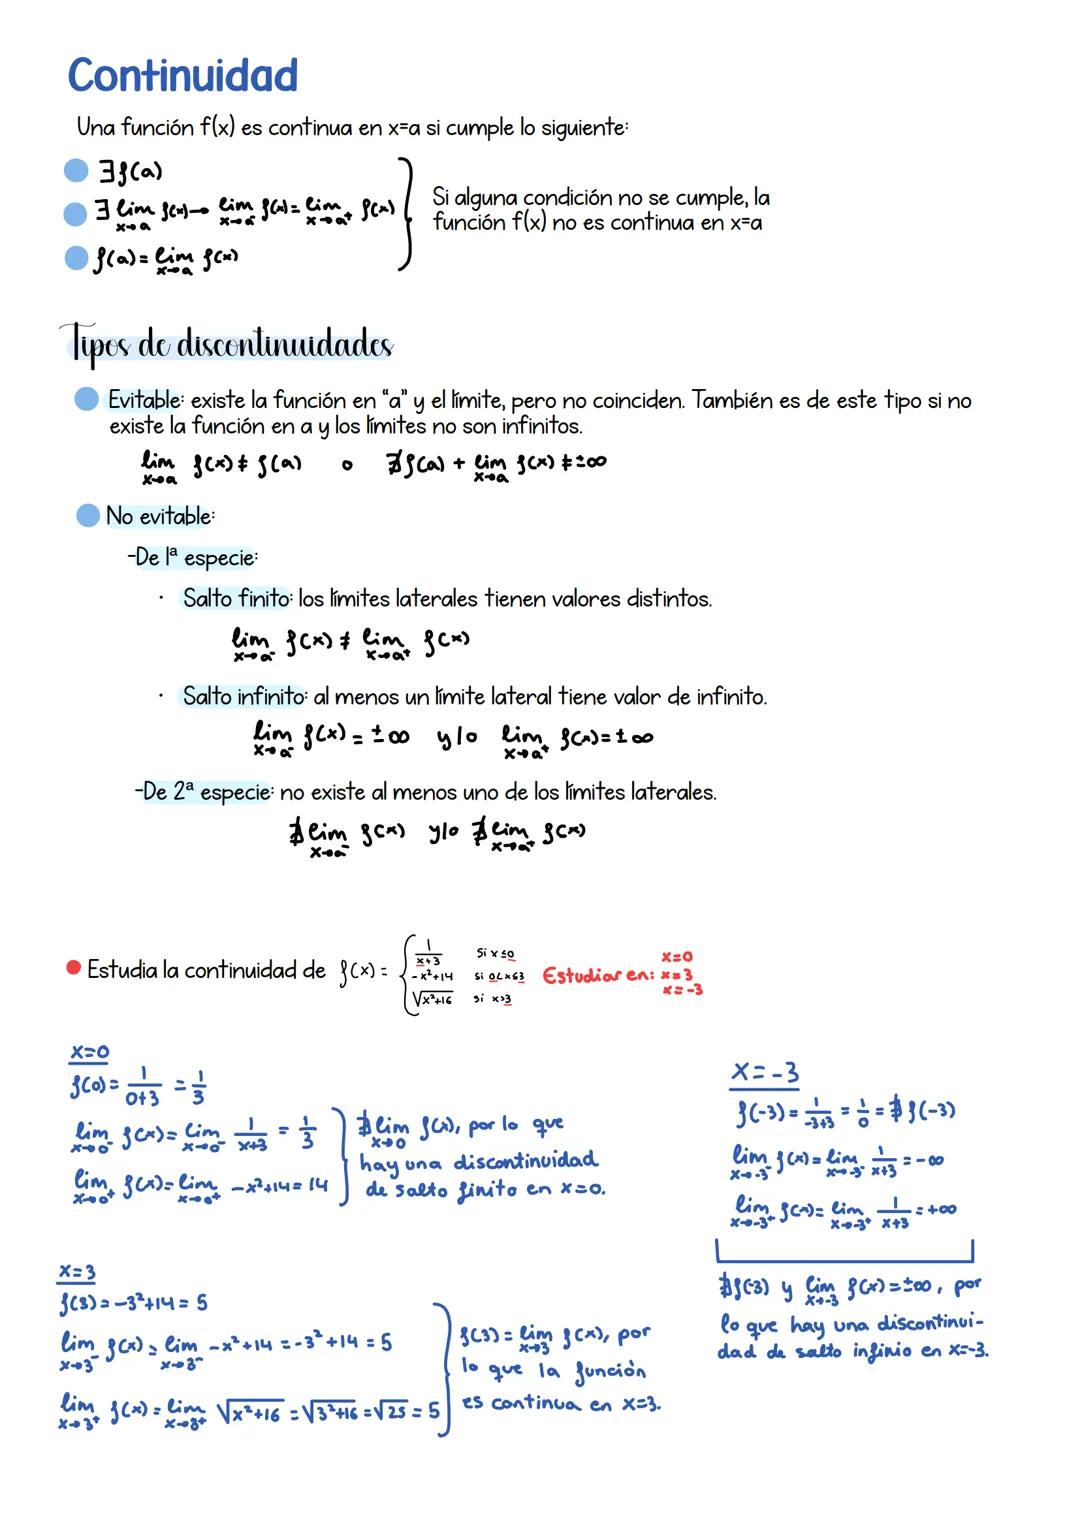 Continuidad
Una función f(x) es continua en x=a si cumple lo siguiente:
∃f(a)
∃ lim x→a f(x) → lim x→a⁻ f(x) = lim x→a⁺ f(x)
f(a) = lim x→a f(x)
Si alguna condición no se cumple, la
función f(x) no es continua en x=a
Tipos de discontinuidades
Evitable: existe la función en “a” y el límite, pero no coinciden. También es de este tipo si no
existe la función en a y los límites no son infinitos.
lim x→a f(x) ≠ f(a) o ∄f(a) + lim x→a f(x) ≠ ±∞
No evitable:
-De 1ª especie:
· Salto finito: los límites laterales tienen valores distintos.
lim x→a⁻ f(x) ≠ lim x→a⁺ f(x)
· Salto infinito: al menos un límite lateral tiene valor de infinito.
lim x→a⁻ f(x) = ±∞ y/o lim x→a⁺ f(x) = ±∞
-De 2ª especie: no existe al menos uno de los límites laterales.
∄ lim x→a⁻ f(x) y/o ∄ lim x→a⁺ f(x)
Estudia la continuidad de f(x) =
1/(x+3) si x≤0
-x²+14 si 0<x≤3
√x²+16 si x>3
Estudiar en: x=0
x=3
x=-3
x=0
f(0) = 1/(0+3) = 1/3
lim x→0⁻ f(x) = lim x→0⁻ 1/(x+3) = 1/3
lim x→0⁺ f(x) = lim x→0⁺ -x²+14 = 14
∄ lim x→0 f(x), por lo que
hay una discontinuidad
de salto finito en x=0.
x=3
f(3) = -3²+14 = 5
lim x→3⁻ f(x) = lim x→3⁻ -x²+14 = -3²+14 = 5
lim x→3⁺ f(x) = lim x→3⁺ √x²+16 = √3²+16 = √25 = 5
f(3) = lim x→3 f(x), por
lo que la función
es continua en x=3.
x=-3
f(-3) = 1/(-3+3) = 1/0 = ∄ f(-3)
lim x→-3⁻ f(x) = lim x→-3⁻ 1/(x+3) = -∞
lim x→-3⁺ f(x) = lim x→-3⁺ 1/(x+3) = +∞
∄f(-3) y lim x→-3 f(x) = ±∞, por
lo que hay una discontinui-
dad de salto infinio en x=-3.